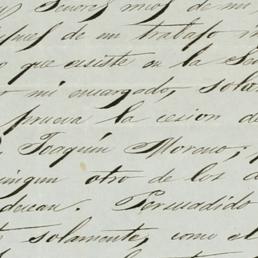 Señores mios de mi
de un trabajo
que existe en la
mi encargado, sola
prueva la cesion de
Joaquin Moreno, y
ningun otro de los
deducan. Persuadido
solamente, como el